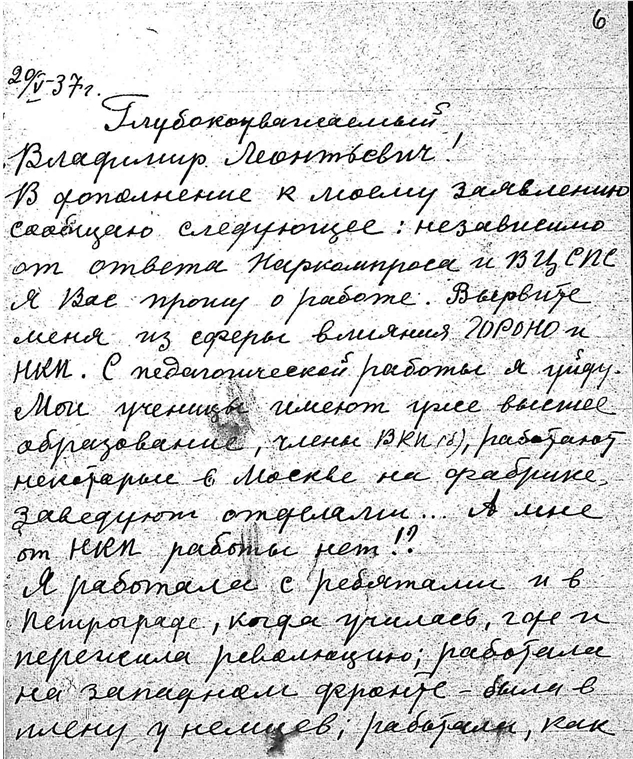 6
20/V-37г.
Глубокоуважаемый
Владимир Леонтьевич!
В дополнение к моему заявлению
сообщаю следующее: независимо
от ответа Наркомпроса и ВЦСПС
я Вас прошу о работе. Вырвите
меня из сферы влияния ГОРОНО и
НКП. С педагогической работы я уйду.
Мои ученицы имеют уже высшее
образование, члены ВКП(б), работают
некоторые в Москве на фабрике,
заведуют отделами... А мне
от НКП работы нет!?
Я работала с ребятами и в
Петрограде, когда училась, где и
пережила революцию; работала
на западном фронте - была в
плену у немцев; работала, как